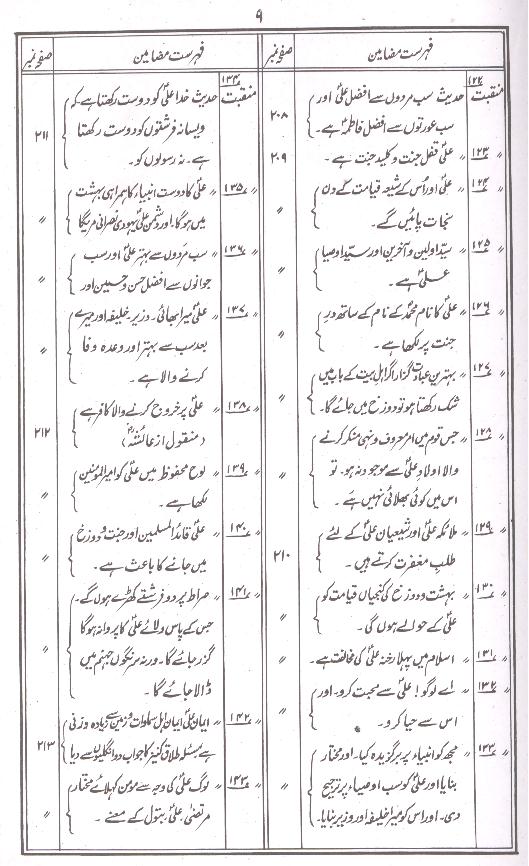 ۹
فہرست مضامین
صفحہ نمبر
منقبت ۱۲۲
حدیث سب مردوں سے افضل علیؑ اور
سب عورتوں سے افضل فاطمہؑ ہے۔
۲۰۸
〃 ۱۲۳ 〃 علیؑ قفل جنت و کلید جنت ہے۔
۲۰۹
〃 ۱۲۴ 〃 علیؑ اور اُس کے شیعہ قیامت کے دن
نجات پائیں گے۔
〃
〃 ۱۲۵ 〃 سیّد اولین و آخرین اور سیّد اوصیا
علیؑ ہے۔
〃
〃 ۱۲۶ 〃 علیؑ کا نام محمدؐ کے نام کے ساتھ درِ
جنت پر لکھا ہے۔
〃
〃 ۱۲۷ 〃 بہترین عبادت گزار اگر اہل بیت کے باب میں
شک رکھتا ہو تو دوزخ میں جائے گا۔
〃
〃 ۱۲۸ 〃 جس قوم میں امر معروف و نہی منکر کرنے
والا اولاد علیؑ سے موجود نہ ہو۔ تو
اس میں کوئی بھلائی نہیں ہے۔
〃
〃 ۱۲۹ 〃 ملائکہ علیؑ اور شیعیان علیؑ کے لئے
طلب مغفرت کرتے ہیں۔
۲۱۰
〃 ۱۳۰ 〃 بہشت و دوزخ کی کنجیاں قیامت کو
علیؑ کے حوالے ہوں گی۔
〃
〃 ۱۳۱ 〃 اسلام میں پہلا رخنہ علیؑ کی مخالفت ہے۔
〃
〃 ۱۳۲ 〃 اے لوگو! علیؑ سے محبت کرو۔ اور
اس سے حیا کرو۔
〃
〃 ۱۳۳ 〃 مجھ کو انبیاء پر برگزیدہ کیا۔ اور مختار
بنایا اور علیؑ کو سب اوصیاء پر ترجیح
دی۔ اور اس کو میرا خلیفہ اور وزیر بنایا۔
〃
فہرست مضامین
صفحہ نمبر
منقبت ۱۳۴
حدیث خدا علیؑ کو دوست رکھتا ہے کہ
ویسا نہ فرشتوں کو دوست رکھتا
ہے۔ نہ رسولوں کو۔
۲۱۱
〃 ۱۳۵ 〃 علیؑ کا دوست انبیاء کا ہمراہی بہشت
میں ہوگا۔ اور دشمن علیؑ یہودی نصرانی مریگا
〃
〃 ۱۳۶ 〃 سب مردوں سے بہتر علیؑ اور سب
جوانوں سے افضل حسن و حسین اور
〃
〃 ۱۳۷ 〃 علیؑ میرا بھائی۔ وزیر خلیفہ اور میرے
بعد سب سے بہتر اور وعدہ وفا
کرنے والا ہے۔
〃
〃 ۱۳۸ 〃 علیؑ پر خروج کرنے والا کافر ہے
(منقول از عائشہؓ)
۲۱۲
〃 ۱۳۹ 〃 لوح محفوظ میں علیؑ کو امیر المؤمنین
لکھا ہے۔
〃
〃 ۱۴۰ 〃 علیؑ قائد المسلمین اور جنت و دوزخ
میں جانے کا باعث ہے۔
〃
〃 ۱۴۱ 〃 صراط پر دو فرشتے کھڑے ہوں گے۔
جس کے پاس ولائے علیؑ کا پروانہ ہوگا
گزر جائے گا۔ ورنہ سرنگوں جہنم میں
ڈالا جائے گا۔
〃
〃 ۱۴۲ 〃 ایمان علیؑ ایمان اہل سماوات و زمین سے زیادہ وزنی
ہے مسئلہ طلاق کنیز کا جواب دو انگلیوں سے دیا
۲۱۳
〃 ۱۴۳ 〃 لوگ علیؑ کی وجہ سے مومن کہلائے مختار
مرتضیٰ علیؑ بتول کے معنے۔
〃